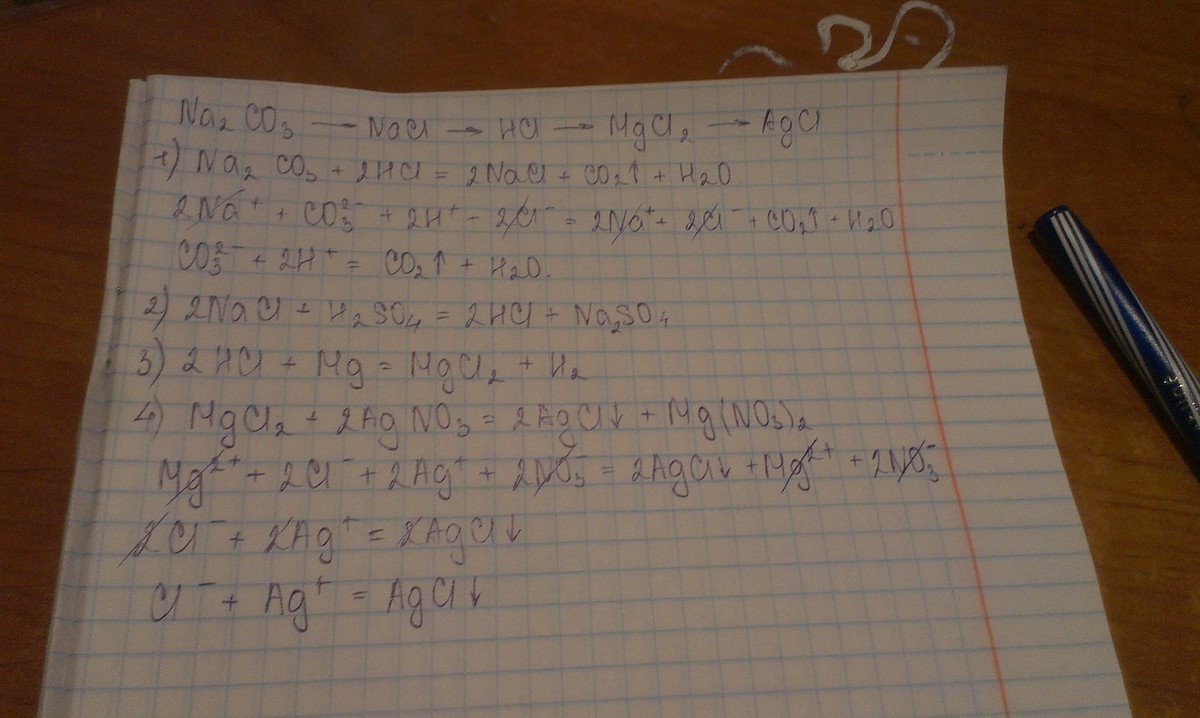 Na₂CO₃ → NaCl → HCl → MgCl₂ → AgCl
1) Na₂CO₃ + 2HCl = 2NaCl + CO₂↑ + H₂O
2Na⁺ + CO₃²⁻ + 2H⁺ + 2Cl⁻ = 2Na⁺ + 2Cl⁻ + CO₂↑ + H₂O
CO₃²⁻ + 2H⁺ = CO₂↑ + H₂O.
2) 2NaCl + H₂SO₄ = 2HCl + Na₂SO₄
3) 2HCl + Mg = MgCl₂ + H₂
4) MgCl₂ + 2AgNO₃ = 2AgCl↓ + Mg(NO₃)₂
Mg²⁺ + 2Cl⁻ + 2Ag⁺ + 2NO₃⁻ = 2AgCl↓ + Mg²⁺ + 2NO₃⁻
2Cl⁻ + 2Ag⁺ = 2AgCl↓
Cl⁻ + Ag⁺ = AgCl↓